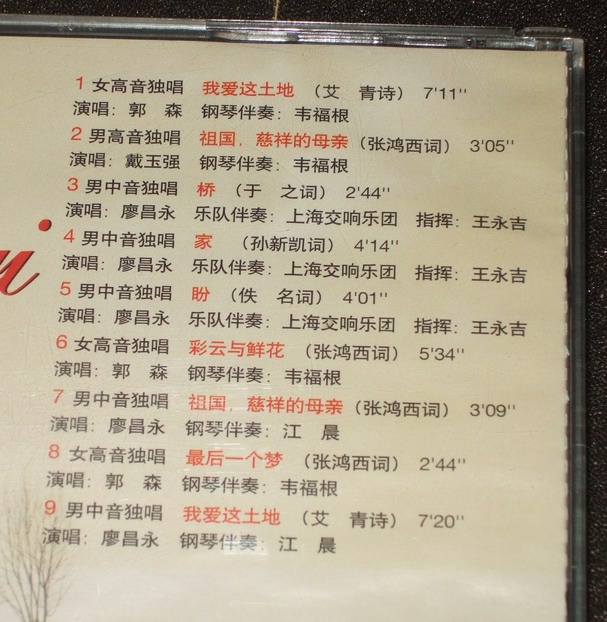 1 女高音独唱 我爱这土地 （艾 青诗） 7'11''
演唱：郭 森 钢琴伴奏：韦福根
2 男高音独唱 祖国，慈祥的母亲（张鸿西词） 3'05''
演唱：戴玉强 钢琴伴奏：韦福根
3 男中音独唱 桥 （于 之词） 2'44''
演唱：廖昌永 乐队伴奏：上海交响乐团 指挥：王永吉
4 男中音独唱 家 （孙新凯词） 4'14''
演唱：廖昌永 乐队伴奏：上海交响乐团 指挥：王永吉
5 男中音独唱 盼 （佚 名词） 4'01''
演唱：廖昌永 乐队伴奏：上海交响乐团 指挥：王永吉
6 女高音独唱 彩云与鲜花 （张鸿西词） 5'34''
演唱：郭 森 钢琴伴奏：韦福根
7 男中音独唱 祖国，慈祥的母亲（张鸿西词） 3'09''
演唱：廖昌永 钢琴伴奏：江 晨
8 女高音独唱 最后一个梦 （张鸿西词） 2'44''
演唱：郭 森 钢琴伴奏：韦福根
9 男中音独唱 我爱这土地 （艾 青诗） 7'20''
演唱：廖昌永 钢琴伴奏：江 晨